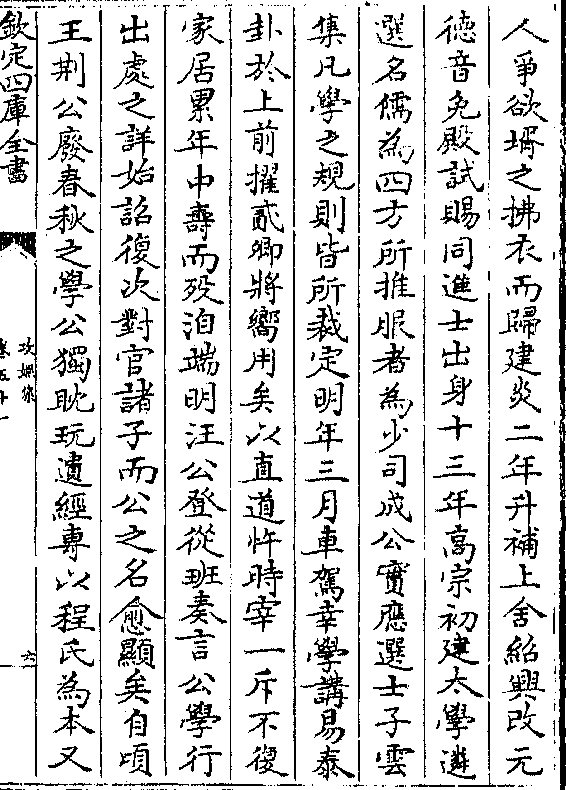 人爭欲壻之拂衣而歸建炎二年升補上舍紹興改元
德音免殿試賜同進士出身十三年高宗初建太學遴
選名儒為四方所推服者為少司成公實應選士子雲
集凡學之規則皆所裁定明年三月車駕幸學講易泰
卦於上前擢貳卿將嚮用矣以直道忤時宰一斥不復
家居累年中壽而殁洎端明汪公登從班奏言公學行
出處之詳始詔復次對官諸子而公之名愈顯矣自頃
王荆公廢春秋之學公獨耽玩遺經專以程氏為本又
欽定四庫全書
攻媿集
卷五十一
六